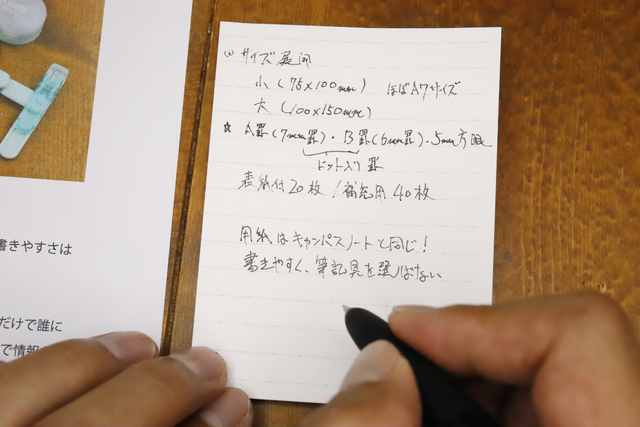 サイズ展開
小(75×100mm) ほぼA7サイズ
大(100×150mm)
☆ A罫(7mm罫)・B罫(6mm罫)・5mm方眼
ドット入り罫
表紙付20枚/補充用40枚
用紙はキャンパスノートと同じ!
書きやすく、筆記具を選ばない
書きやすさは
だけで誰に
で情報